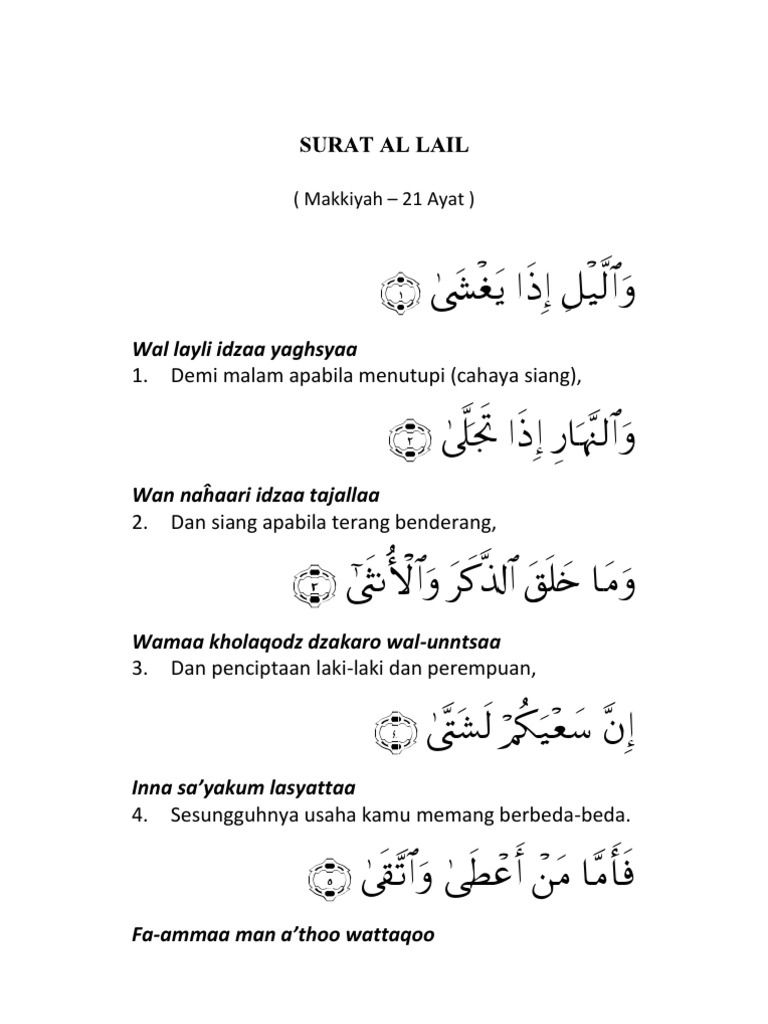 SURAT AL LAIL
( Makkiyah – 21 Ayat )
وَٱلَّيۡلِ إِذَا يَغۡشَىٰ ١
Wal layli idzaa yaghsyaa
1. Demi malam apabila menutupi (cahaya siang),
وَٱلنَّهَارِ إِذَا تَجَلَّىٰ ٢
Wan naĥaari idzaa tajallaa
2. Dan siang apabila terang benderang,
وَمَا خَلَقَ ٱلذَّكَرَ وَٱلۡأُنثَىٰٓ ٣
Wamaa kholaqodz dzakaro wal-unntsaa
3. Dan penciptaan laki-laki dan perempuan,
إِنَّ سَعۡيَكُمۡ لَشَتَّىٰ ٤
Inna sa’yakum lasyattaa
4. Sesungguhnya usaha kamu memang berbeda-beda.
فَأَمَّا مَنۡ أَعۡطَىٰ وَٱتَّقَىٰ ٥
Fa-ammaa man a’thoo wattaqoo